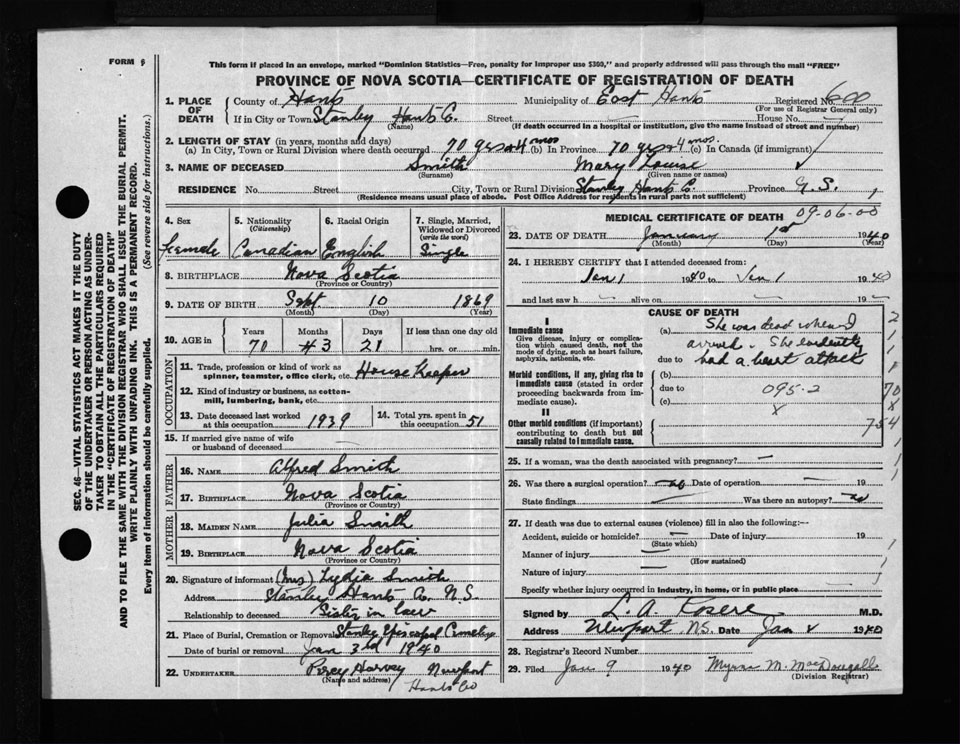 FORM
This form if placed in an envelope, marked "Dominion Statistics—Free, penalty for improper use $300," and properly addressed will pass through the mail "FREE"
PROVINCE OF NOVA SCOTIA—CERTIFICATE OF REGISTRATION OF DEATH
SEC. 46—VITAL STATISTICS ACT MAKES IT THE DUTY
OF THE UNDERTAKER OR PERSON ACTING AS UNDER-
TAKER TO OBTAIN ALL THE PARTICULARS REQUIRED
IN THE "CERTIFICATE OF REGISTRATION OF DEATH"
AND TO FILE THE SAME WITH THE DIVISION REGISTRAR WHO SHALL ISSUE THE BURIAL PERMIT.
WRITE PLAINLY WITH UNFADING INK. THIS IS A PERMANENT RECORD.
Every item of information should be carefully supplied. (See reverse side for instructions.)
1. PLACE OF DEATH
County of Hants Municipality of East Hants Registered No. 600
(For use of Registrar General only)
If in City or Town Stanley Hants C. Street House No.
(Name) (If death occurred in a hospital or institution, give the name instead of street and number)
2. LENGTH OF STAY (in years, months and days)
(a) In City, Town or Rural Division where death occurred 70 yrs 4 mos (b) In Province 70 yrs 4 mos (c) In Canada (if immigrant)
3. NAME OF DECEASED Smith Mary Louise
(Surname) (Given name or names)
RESIDENCE No. Street City, Town or Rural Division Stanley Hants C. Province
(Residence means usual place of abode. Post Office Address for residents in rural parts not sufficient)
4. Sex Female
5. Nationality (Citizenship) Canadian
6. Racial Origin English
7. Single, Married, Widowed or Divorced (write the word) Single
8. BIRTHPLACE Nova Scotia
(Province or Country)
9. DATE OF BIRTH Sept 10 1869
(Month) (Day) (Year)
10. AGE in Years Months Days If less than one day old
70 #3 21 hrs. or min.
OCCUPATION
11. Trade, profession or kind of work as
spinner, teamster, office clerk, etc. House Keeper
12. Kind of industry or business, as cotton-
mill, lumbering, bank, etc.
13. Date deceased last worked
at this occupation 1939
14. Total yrs. spent in
this occupation 51
15. If married give name of wife
or husband of deceased
FATHER
16. NAME Alfred Smith
17. BIRTHPLACE Nova Scotia
MOTHER
18. MAIDEN NAME Julia Smith
19. BIRTHPLACE Nova Scotia
(Province or Country)
20. Signature of informant (Mrs) Lydia Smith
Address Stanley Hants Co. N.S.
Relationship to deceased Sister in law
21. Place of Burial, Cremation or Removal Stanley Episcopal Cemetery
Date of burial or removal Jan 3rd 1940
22. UNDERTAKER Percy Harvey Newport
(Name and address) Hants Co
MEDICAL CERTIFICATE OF DEATH 09-06-00
23. DATE OF DEATH January 1st 1940
(Month) (Day) (Year)
24. I HEREBY CERTIFY that I attended deceased from:
Jan 1 1940 to Jan 1 1940
and last saw h alive on 19
CAUSE OF DEATH
I
Immediate cause
Give disease, injury or complica-
tion which caused death, not the
mode of dying, such as heart failure,
asphyxia, asthenia, etc.
(a) She was dead when I
arrived. She evidently
due to had a heart attack
Morbid conditions, if any, giving rise to
immediate cause (stated in order
proceeding backwards from im-
mediate cause).
(b)
due to 095-2
(c) x
II
Other morbid conditions (if important)
contributing to death but not
causally related to immediate cause.
2
70
754
25. If a woman, was the death associated with pregnancy? —
26. Was there a surgical operation? no Date of operation 19
State findings Was there an autopsy? no
27. If death was due to external causes (violence) fill in also the following:—
Accident, suicide or homicide? Date of injury 19
(State which)
Manner of injury
(How sustained)
Nature of injury
Specify whether injury occurred in industry, in home, or in public place
Signed by L. A. M.D.
Address Newport N.S. Date Jan 1940
28. Registrar's Record Number
29. Filed Jan 9 1940 Myrna M. MacDougall
(Division Registrar)